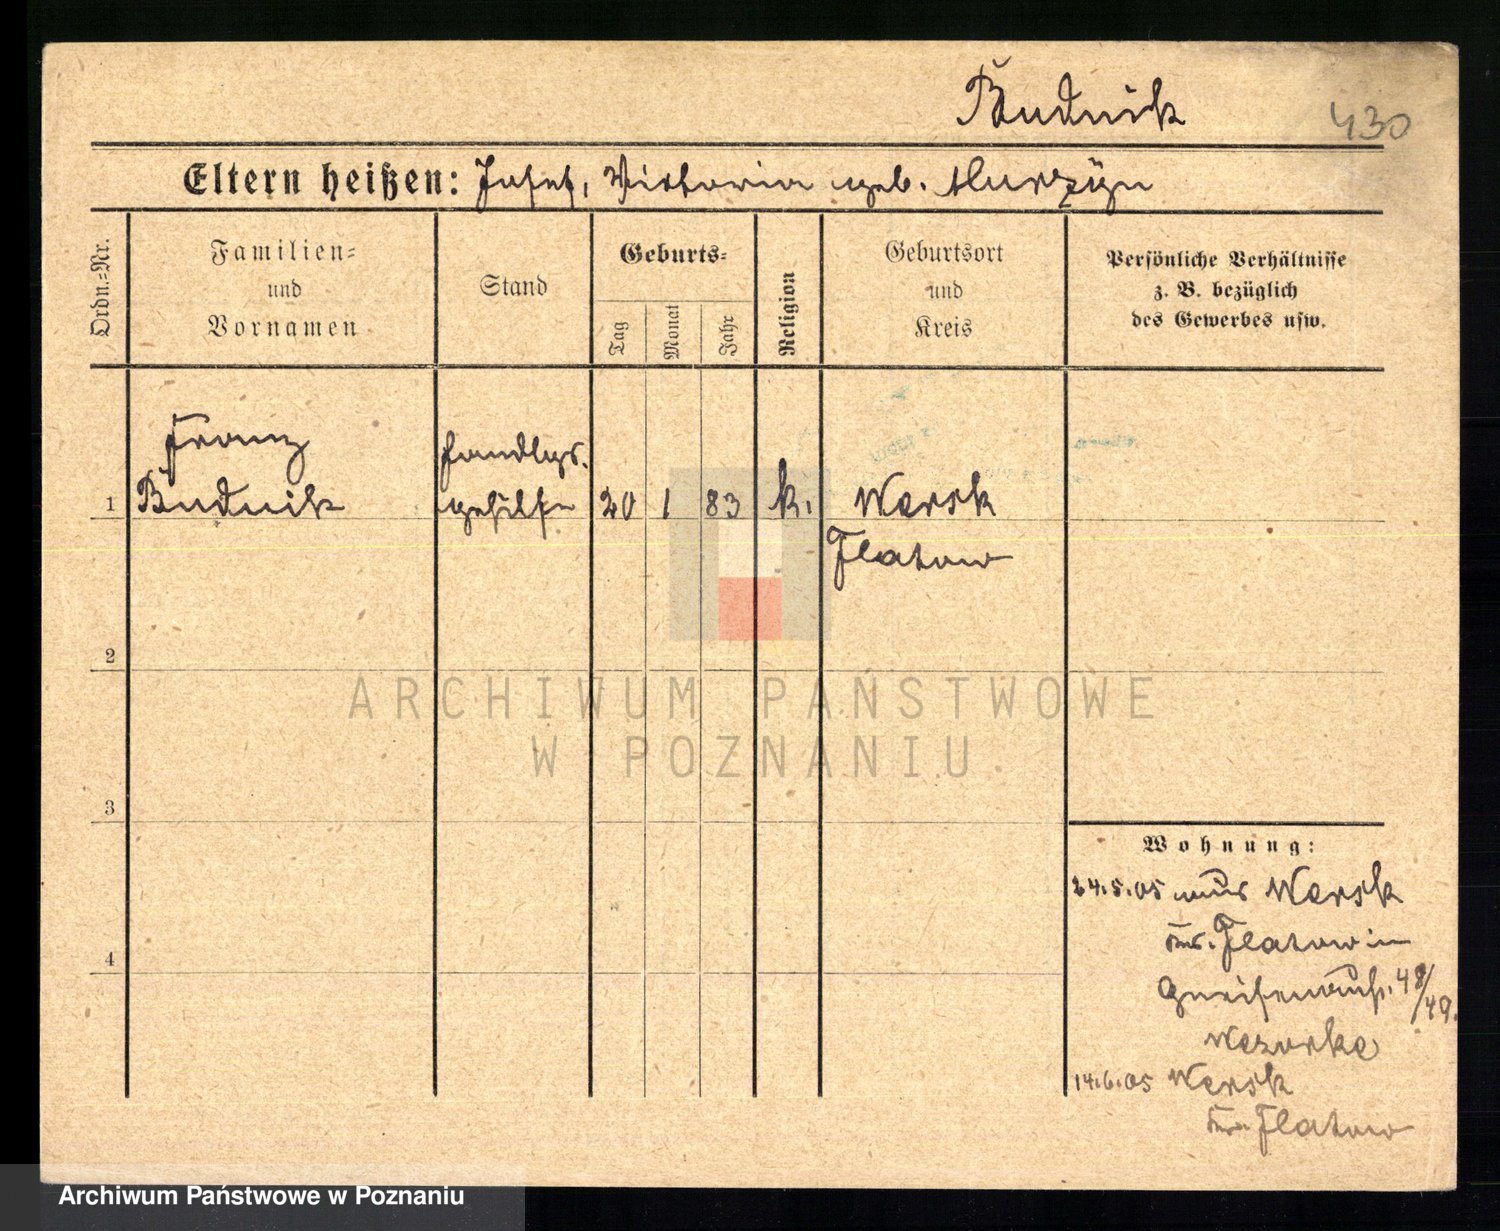 Budnik 430
Eltern heißen: Josef, Victoria geb.
Ordn.=Nr.
Familien=
und
Vornamen
Stand
Geburts=
Tag
Monat
Jahr
Religion
Geburtsort
und
Kreis
Persönliche Verhältnisse
z. B. bezüglich
des Gewerbes usw.
Franz
Handlgs.
1 Budnik gehilfe 20 1 83 k. Wersk
Flatow
2
3
4
Wohnung:
24.5.05 aus Wersk
Krs. Flatow in
Gneisenaustr. 48/49.
14.6.05 Wersk
Krs. Flatow
ARCHIWUM PAŃSTWOWE
W POZNANIU
Archiwum Państwowe w Poznaniu